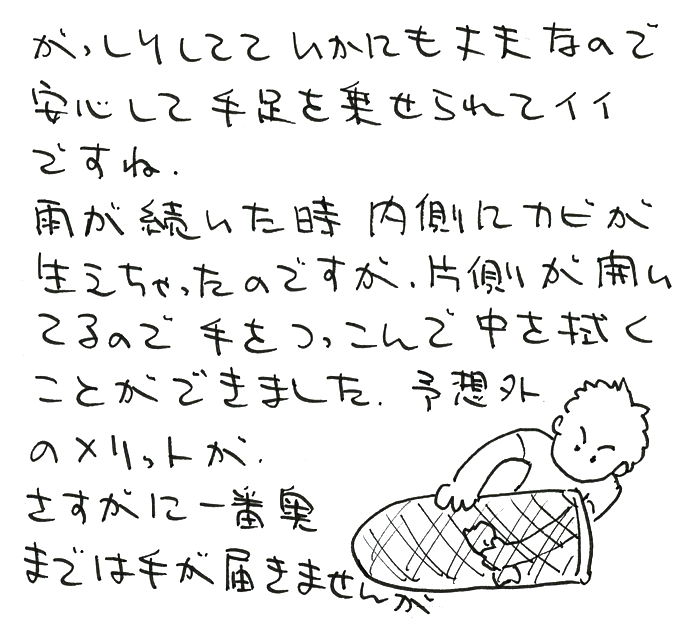 がっしりしてて いかにも丈夫なので
安心して 手足を乗せられてイイ
ですね.
雨が続いた時 内側にカビが
生えちゃったのですが.片側が開い
てるので 手をつっこんで 中を拭く
ことができました. 予想外
のメリットが.
さすがに一番奥
までは手が届きませんが